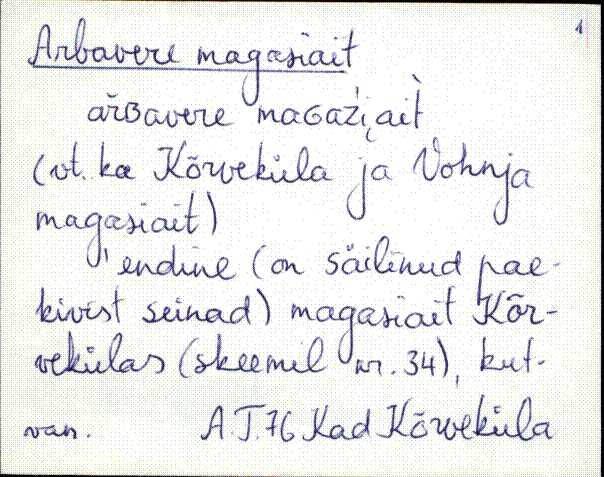 1
Arbavere magasiait
ar̆ʙavere maɢaźi̯ait̀
(vt. ka Kõrveküla ja Vohnja
magasiait)
'endine (on säilinud pae-
kivist seinad) magasiait Kõr-
vekülas (skeemil nr. 34), kut-
van. A.T.76 Kad Kõrveküla